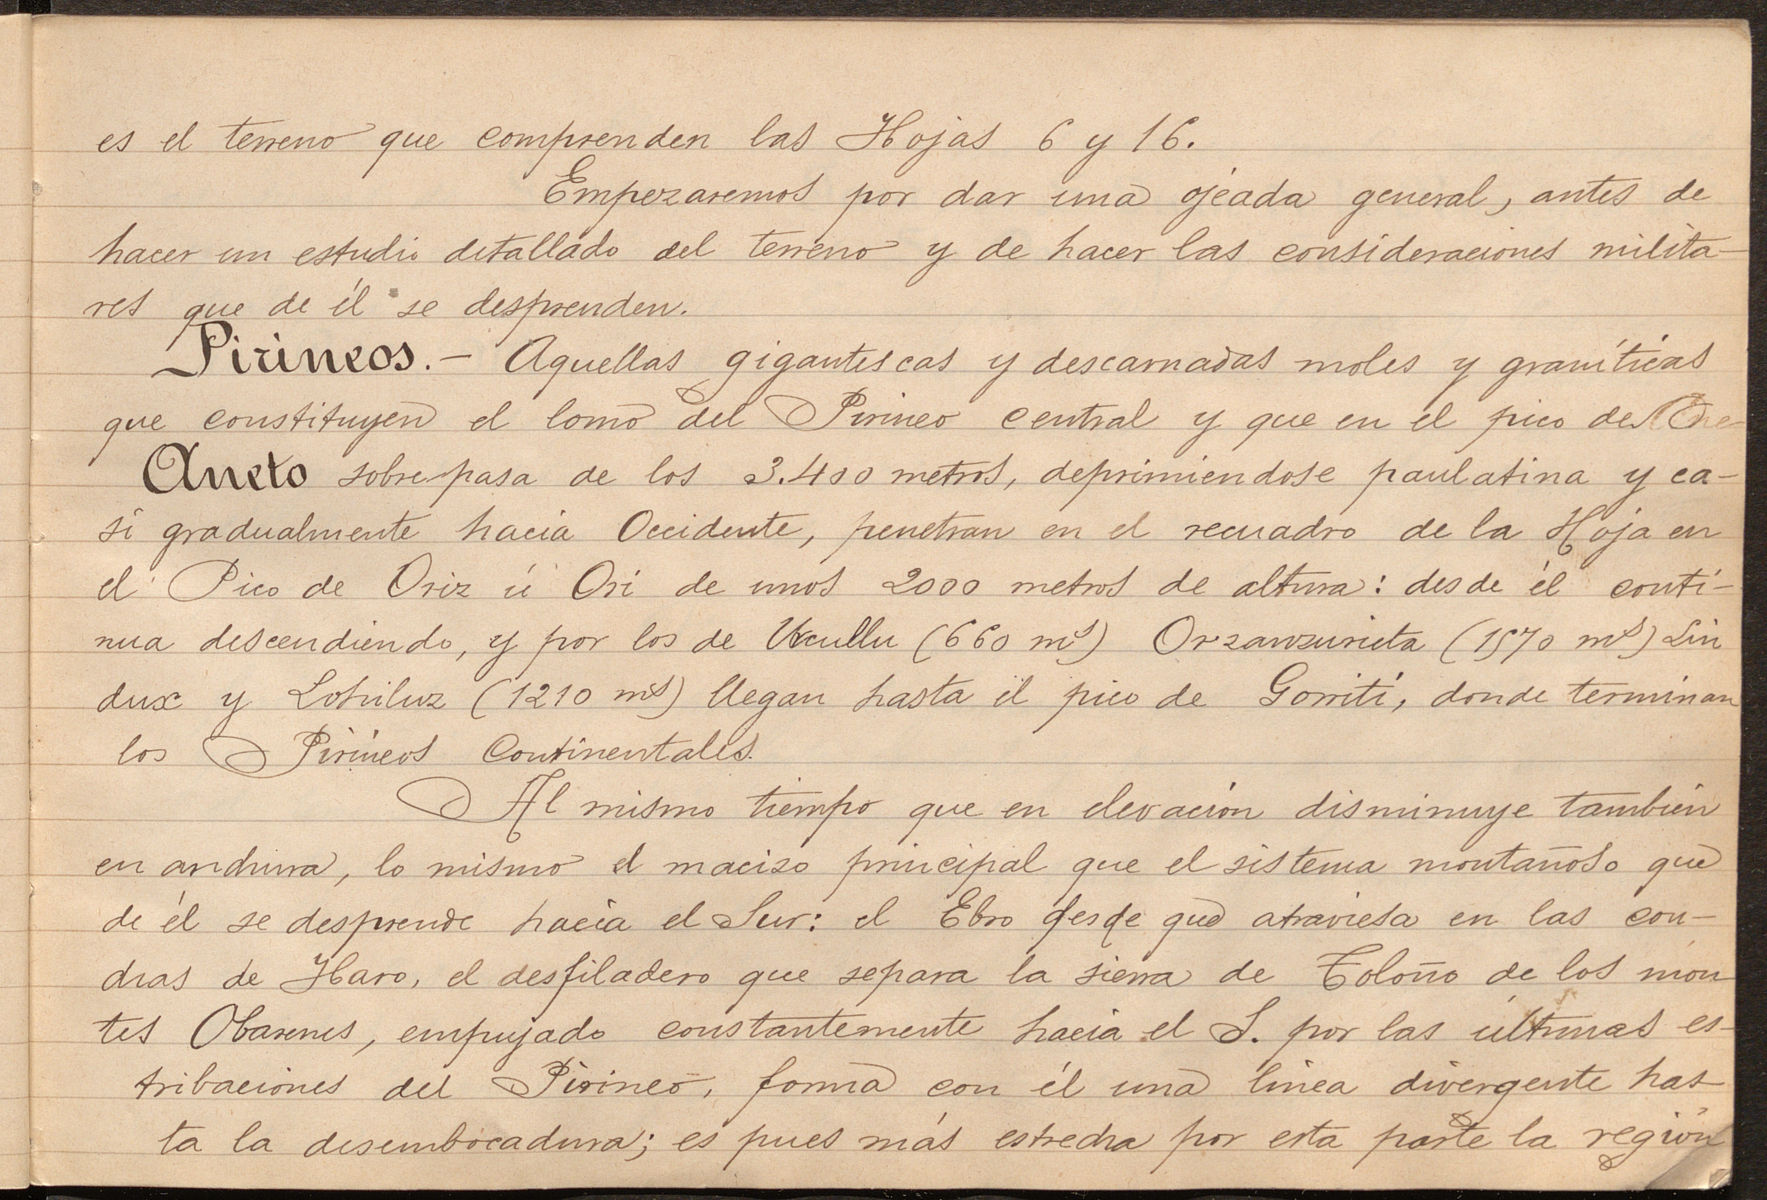 es el terreno que comprenden las Hojas 6 y 16.
Empezaremos por dar una ojeada general, antes de
hacer un estudio detallado del terreno y de hacer las consideraciones milita-
res que de él se desprenden.
Pirineos. — Aquellas gigantescas y descarnadas moles y graníticas
que constituyen el lomo del Pirineo central y que en el pico de One-
Aneto sobrepasa de los 3.400 metros, deprimiendose paulatina y ca-
si gradualmente hacia Occidente, penetran en el recuadro de la Hoja en
el Pico de Oriz ú Ori de unos 2000 metros de altura: desde él conti-
nua descendiendo, y por los de Urcullu (660 ms) Orzanzurieta (1570 ms) Lin
dux y Lohiluz (1210 ms) llegan hasta el pico de Gorriti, donde terminan
los Pirineos Continentales.
Al mismo tiempo que en elevación disminuye también
en anchura, lo mismo el macizo principal que el sistema montañoso que
de él se desprende hacia el Sur: el Ebro desde que atraviesa en las con-
chas de Haro, el desfiladero que separa la sierra de Toloño de los mon
tes Obarenes, empujado constantemente hacia el S. por las últimas es-
tribaciones del Pirineo, forma con él una línea divergente has-
ta la desembocadura; es pues más estrecha por esta parte la región